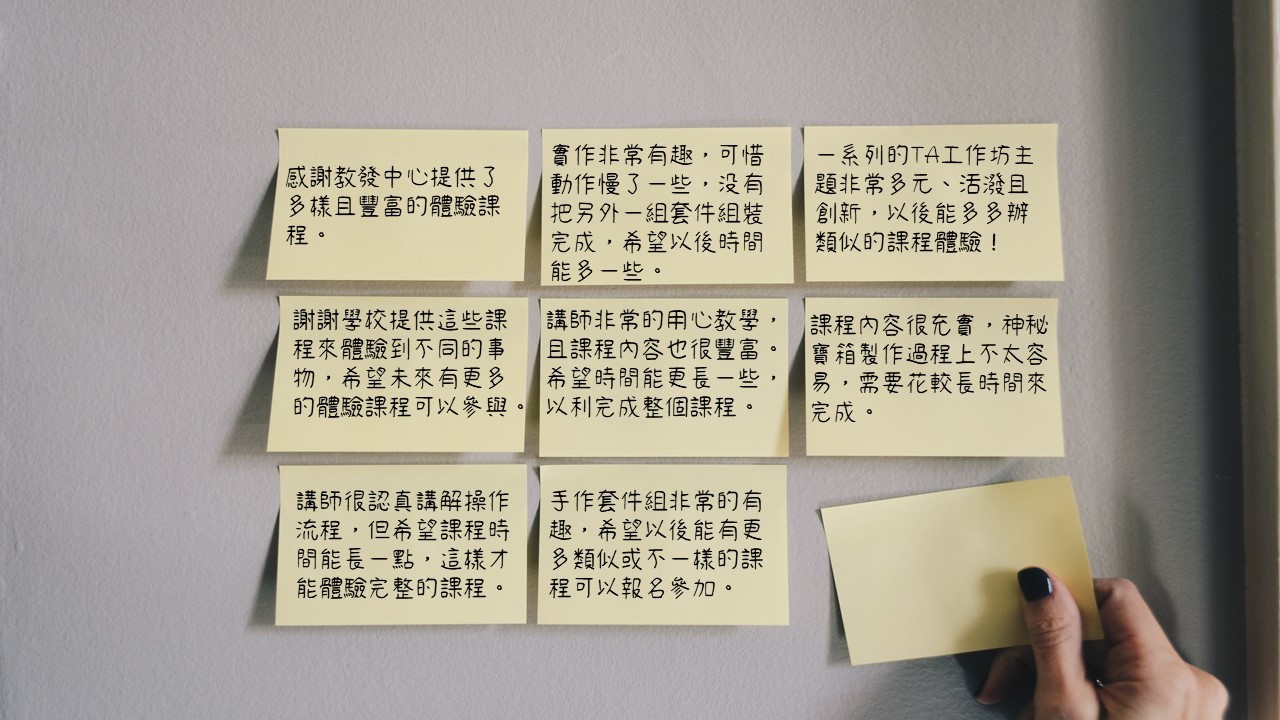 感謝教發中心提供了
多樣且豐富的體驗課
程。
實作非常有趣，可惜
動作慢了一些，没有
把另外一組套件組裝
完成，希望以後時間
能多一些。
一系列的TA工作坊主
題非常多元、活潑且
創新，以後能多多辦
類似的課程體驗！
謝謝學校提供這些課
程來體驗到不同的事
物，希望未來有更多
的體驗課程可以參與。
講師非常的用心教學，
且課程內容也很豐富。
希望時間能更長一些，
以利完成整個課程。
課程內容很充實，神秘
寶箱製作過程上不太容
易，需要花較長時間來
完成。
講師很認真講解操作
流程，但希望課程時
間能長一點，這樣才
能體驗完整的課程。
手作套件組非常的有
趣，希望以後能有更
多類似或不一樣的課
程可以報名參加。